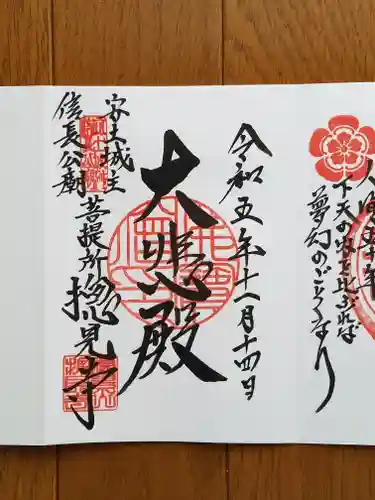 下天の内を比ぶれば
夢幻のごとくなり
令和五年十一月十四日
大悲殿
安土城主
信長公朝
菩提所
摠見寺